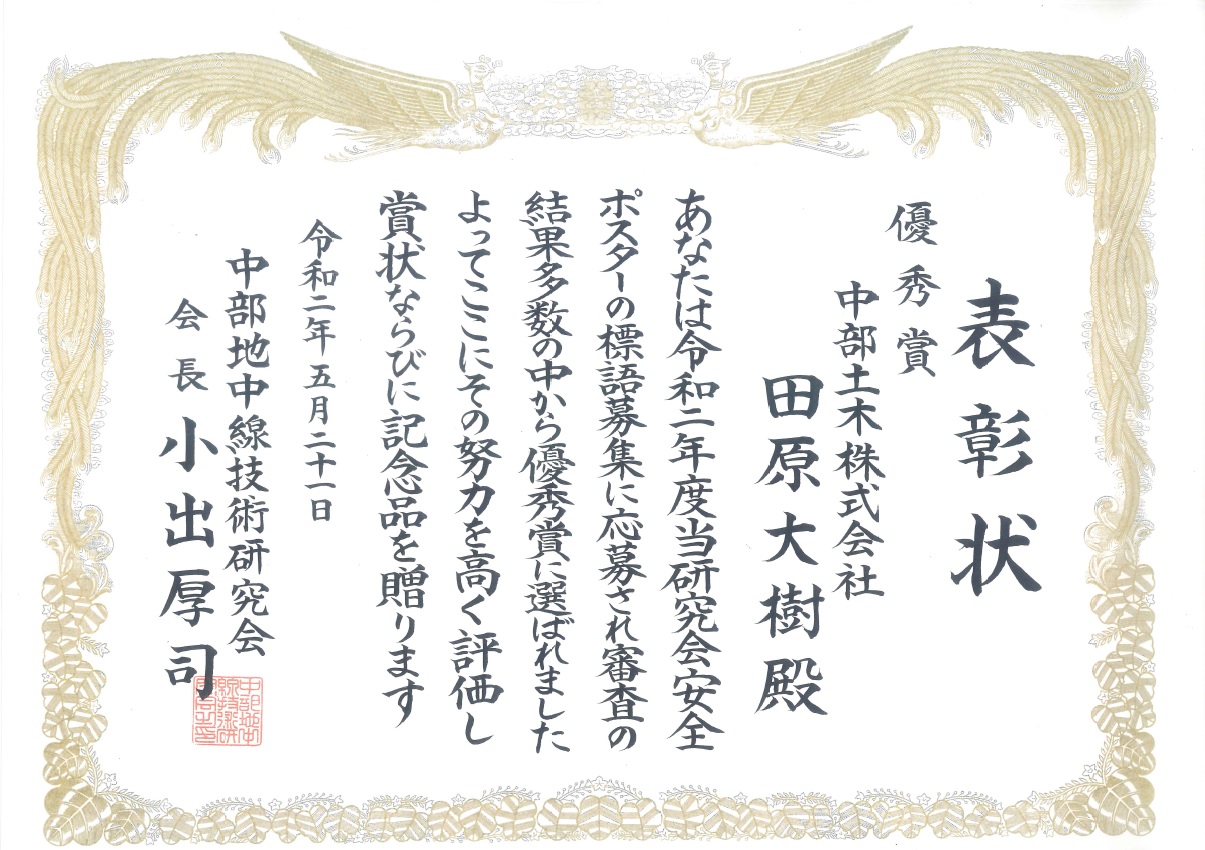 表彰状
優秀賞
中部土木株式会社
田原大樹殿
あなたは令和二年度当研究会安全
ポスターの標語募集に応募され審査の
結果多数の中から優秀賞に選ばれました
よってここにその努力を高く評価し
賞状ならびに記念品を贈ります
令和二年五月二十一日
中部地中線技術研究会
会長 小出厚司